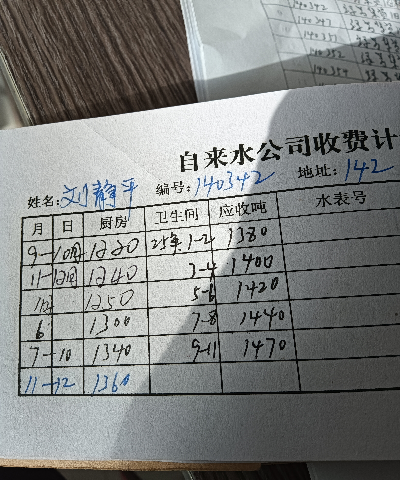 140342
140347
140352
140354
自来水公司收费计
姓名:刘静平 编号:140342 地址:142
月 日 厨房 卫生间 应收吨 水表号
9-10月 1220 25年1-2 1380
11-12月 1240 3-4 1400
1250 5-6 1420
6 1300 7-8 1440
7-10 1340 9-11 1470
11-12 1360